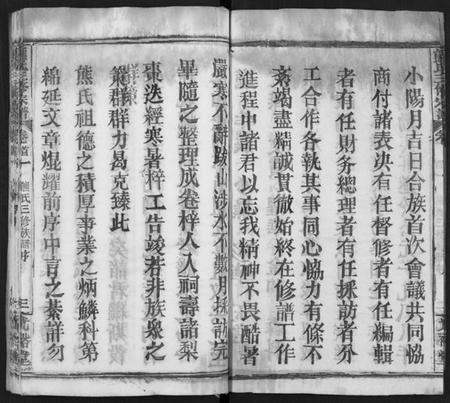 小陽月吉日合族首次會議共同協
商付諸表決有任督修者有任編輯
者有任財務總理者有任採訪者分
工合作各執其事同心協力有條不
紊竭盡精誠貫徹始終在修譜工作
進程中諸君以忘我精神不畏酷暑
嚴寒不辭跋山涉水不數月採訪完
畢隨之整理成卷梓人入祠壽諸梨
棗迭經寒暑梓工告竣若非族衆之
群策群力曷克臻此
熊氏祖德之積厚事業之炳麟科第
綿延文章焜耀前序中言之綦詳勿
卷首一 熊氏三修族譜序